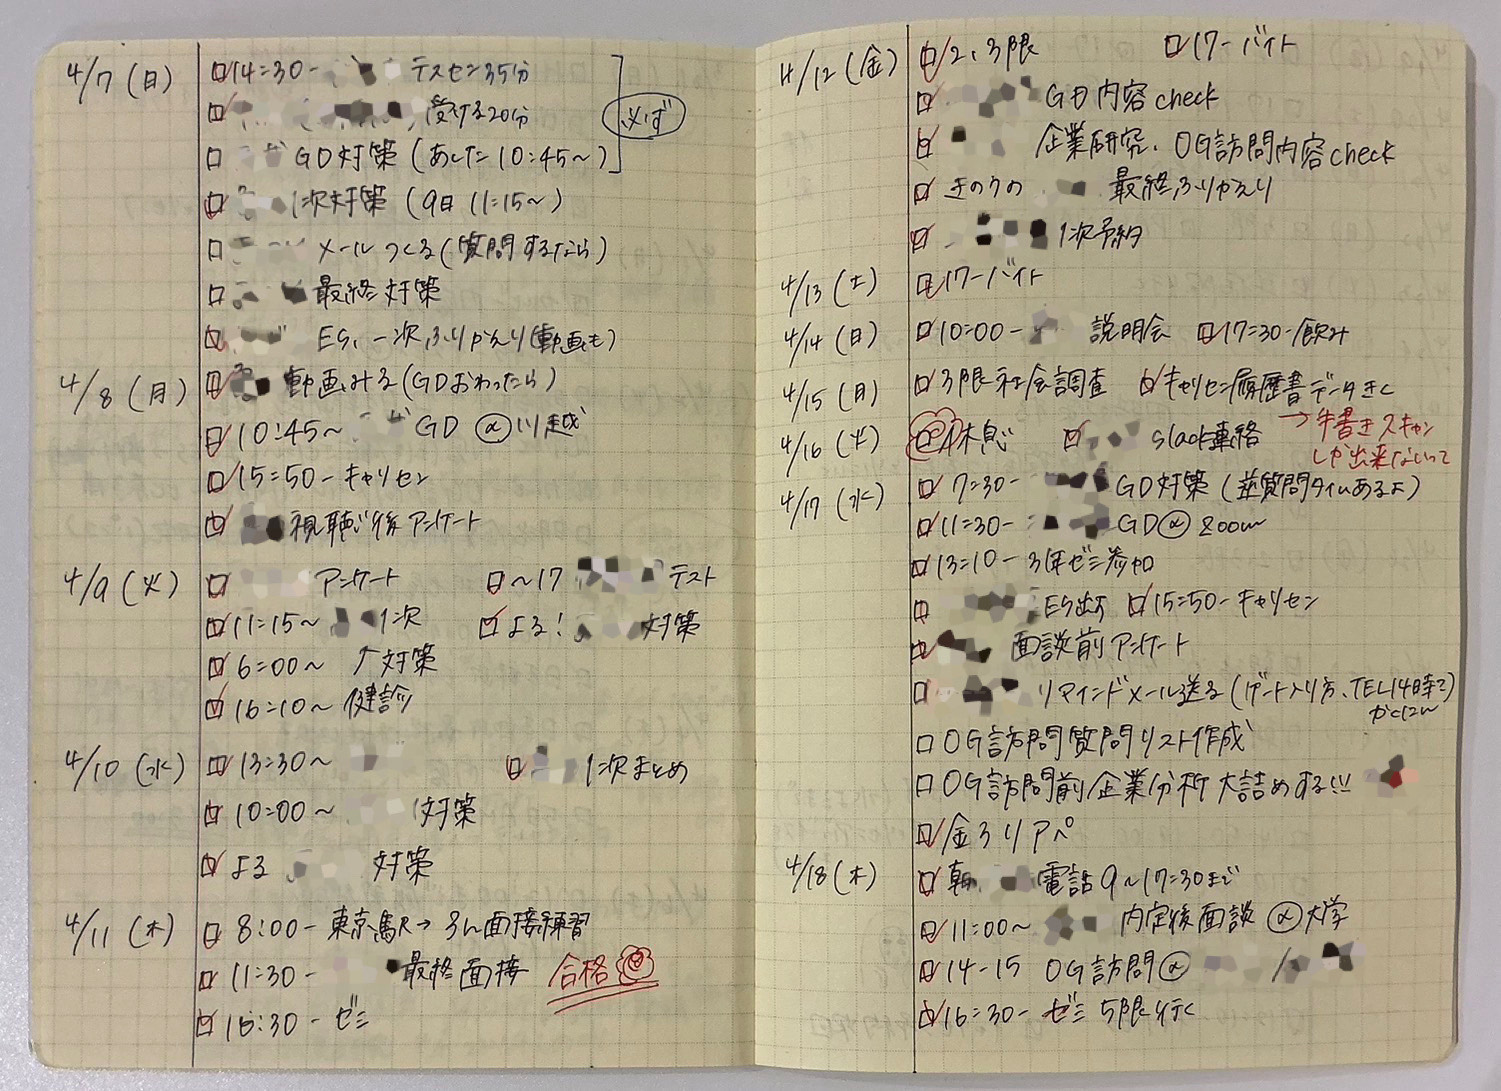 4/7 (日) 14:30- テスセン35分
受ける20分 必ず
GD対策 (あした10:45~)
1次対策 (9日 11:15~)
メールつくる(質問するなら)
最終対策
ES、一次ふりかえり(動画も)
4/8 (月) 動画みる(GDおわったら)
10:45~ GD @川越
15:50-キャリセン
視聴後アンケート
4/9 (火) アンケート ~17 テスト
11:15~ 1次 よる! 対策
6:00~ ↑対策
16:10~ 健診
4/10 (水) 13:30~ 1次まとめ
10:00~ 対策
よる 対策
4/11 (木) 8:00-東京駅→ 面接練習
11:30- 最終面接 合格
16:30-ゼミ
4/12 (金) 2、3限 17-バイト
GD内容check
企業研究、OG訪問内容check
きのうの 最終ふりかえり
1次予約
4/13 (土) 17-バイト
4/14 (日) 10:00- 説明会 17:30-飲み
4/15 (月) 3限社会調査 キャリセン履歴書データきく
→手書きスキャン
しか出来ないって
4/16 (火) 休息 slack連絡
4/17 (水) 7:30- GD対策 (逆質問タイムあるよ)
11:30- GD@zoom
13:10-3年ゼミ参加
ES出す 15:50-キャリセン
面談前アンケート
リマインドメール送る(ゲート入り方、TEL14時で)
かくにん
OG訪問質問リスト作成
OG訪問前企業分析大詰めする!!!
金ろりアペ
4/18 (木) 朝 電話9~17:30まで
11:00~ 内定後面談@大学
14-15 OG訪問@ /
16:30-ゼミ 5限行く